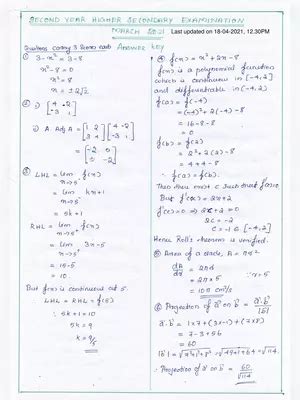 SECOND YEAR HIGHER SECONDARY EXAMINATION
MARCH 2021
Last updated on 18-04-2021, 12.30PM
Questions carrying 3 Scores each
Answer Key
① 3 - x² = 3 - 8
x² - 8 = 0
x² = 8
x = ±2√2
② i) [4 -2
-3 1]
ii) A. Adj A = [1 2
3 4] [4 -2
-3 1]
= [-2 0
0 -2]
③ LHL = lim f(x)
x→5⁻
= lim kx+1
x→5
= 5k+1
RHL = lim f(x)
x→5⁺
= lim 3x-5
x→5
= 15-5
= 10
But f(x) is continuous at 5.
LHL = RHL = f(5)
∴ 5k+1 = 10
5k = 9
k = 9/5
④ f(x) = x² + 2x - 8
f(x) is a polynomial function
which is continuous in [-4, 2]
and differentiable in (-4, 2)
f(a) = f(-4)
= (-4)² + 2(-4) - 8
= 16 - 8 - 8
= 0
f(b) = f(2)
= 2² + 2(2) - 8
= 4 + 4 - 8
∴ f(a) = f(b).
Then there exist c such that f'(c)=0
But f'(x) = 2x + 2
f'(c) = 0 ⇒ 2c + 2 = 0
2c = -2
c = -1 ∈ [-4, 2]
Hence Roll's theorem is verified.
⑤ Area of a circle, A = πr²
dA/dr = 2πr
∵ r = 5
= 2π × 5
= 10π cm²/s
⑥ Projection of a⃗ on b⃗ = a⃗.b⃗/|b⃗|
a⃗.b⃗ = 1×7 + (3×-1) + (7×8)
= 7 - 3 + 56
= 60
|b⃗| = √7²+1²+8² = √49+1+64 = √114
∴ Projection of a⃗ on b⃗ = 60/√114